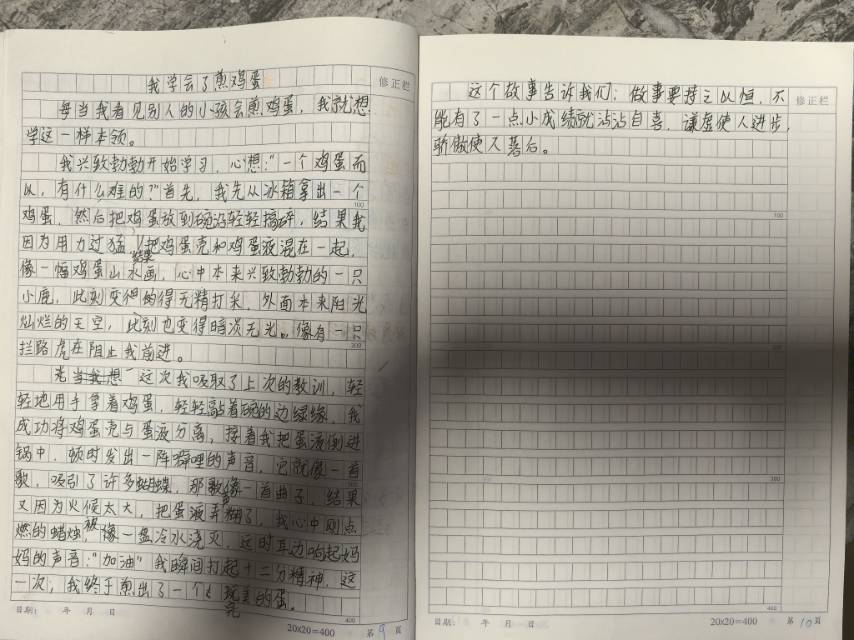 我学会了煎鸡蛋
修正栏
每当我看见别人的小孩会煎鸡蛋，我就想
学这一样本领。
我兴致勃勃开始学习，心想："一个鸡蛋而
以，有什么难的？"首先，我先从冰箱拿出一个
100
鸡蛋，然后把鸡蛋放到碗沿轻轻搞碎，结果我
因为用力过猛，把鸡蛋壳和鸡蛋液混在一起，
结果
像一幅鸡蛋山水画，心中本来兴致勃勃的一只
小鹿，此刻变得的得无精打采，外面本来阳光
灿烂的天空，此刻也变得暗淡无光。像有一只
拦路虎在阻止我前进。
这次我吸取了上次的教训，轻
轻地用手拿着鸡蛋，轻轻敲着碗的边缘，我
成功将鸡蛋壳与蛋液分离，接着我把蛋液倒进
锅中，顿时发出一阵噼哩的声音，它就像一首
歌，吸引了许多蝴蝶，那歌像一首曲子，结果
又因为火候太大，把蛋液弄糊了，我心中刚点
燃的蜡烛，被像一盘冷水浇灭，这时耳边响起妈
妈的声音："加油"我瞬间打起十二分精神，这
一次，我终于煎出了一个完美的蛋。
400
日期： 年 月 日
20x20=400
第 9 页
修正栏
这个故事告诉我们：做事要持之以恒，不
能有了一点小成绩就沾沾自喜，谦虚使人进步，
骄傲使人落后。
100
300
400
日期： 年 月 日
20x20=400
第 10 页